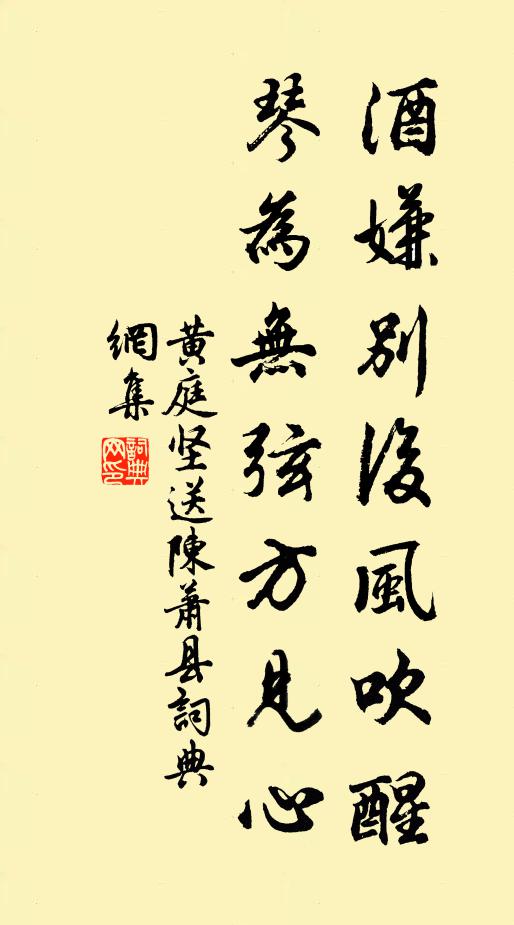 酒嫌別後風吹醒
琴為無弦方見心
黄庭坚送陳蕭县詞典
網集
詞典
网印